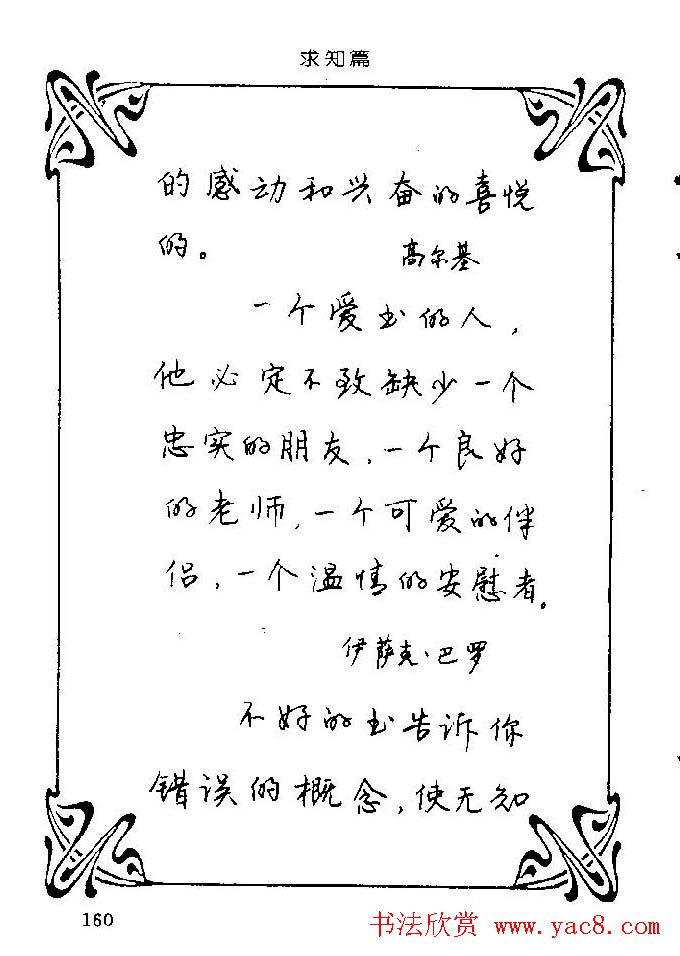 求知篇
的感动和兴奋的喜悦
的。 高尔基
一个爱书的人，
他必定不致缺少一个
忠实的朋友，一个良好
的老师，一个可爱的伴
侣，一个温情的安慰者。
伊萨克·巴罗
不好的书告诉你
错误的概念，使无知
160
书法欣赏 www.yac8.com